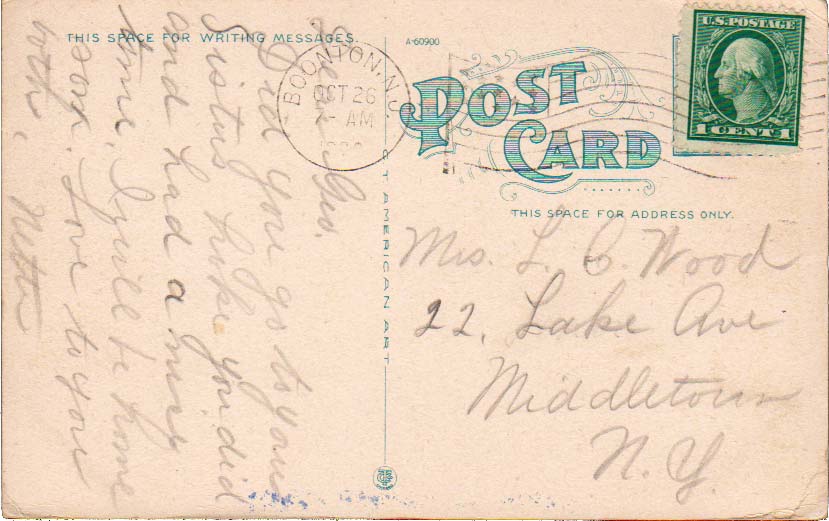 THIS SPACE FOR WRITING MESSAGES.
A-60900
POST
CARD
THIS SPACE FOR ADDRESS ONLY.
U.S. POSTAGE
1 CENT 1
BOONTON, N.J.
OCT 26
AM
C T AMERICAN ART
Dear
Did you go to your
Sisters hope you did
and had a nice
time, I will be home
soon. Love to you
both,
Mrs. L. C. Wood
22, Lake Ave
Middletown
N. Y.